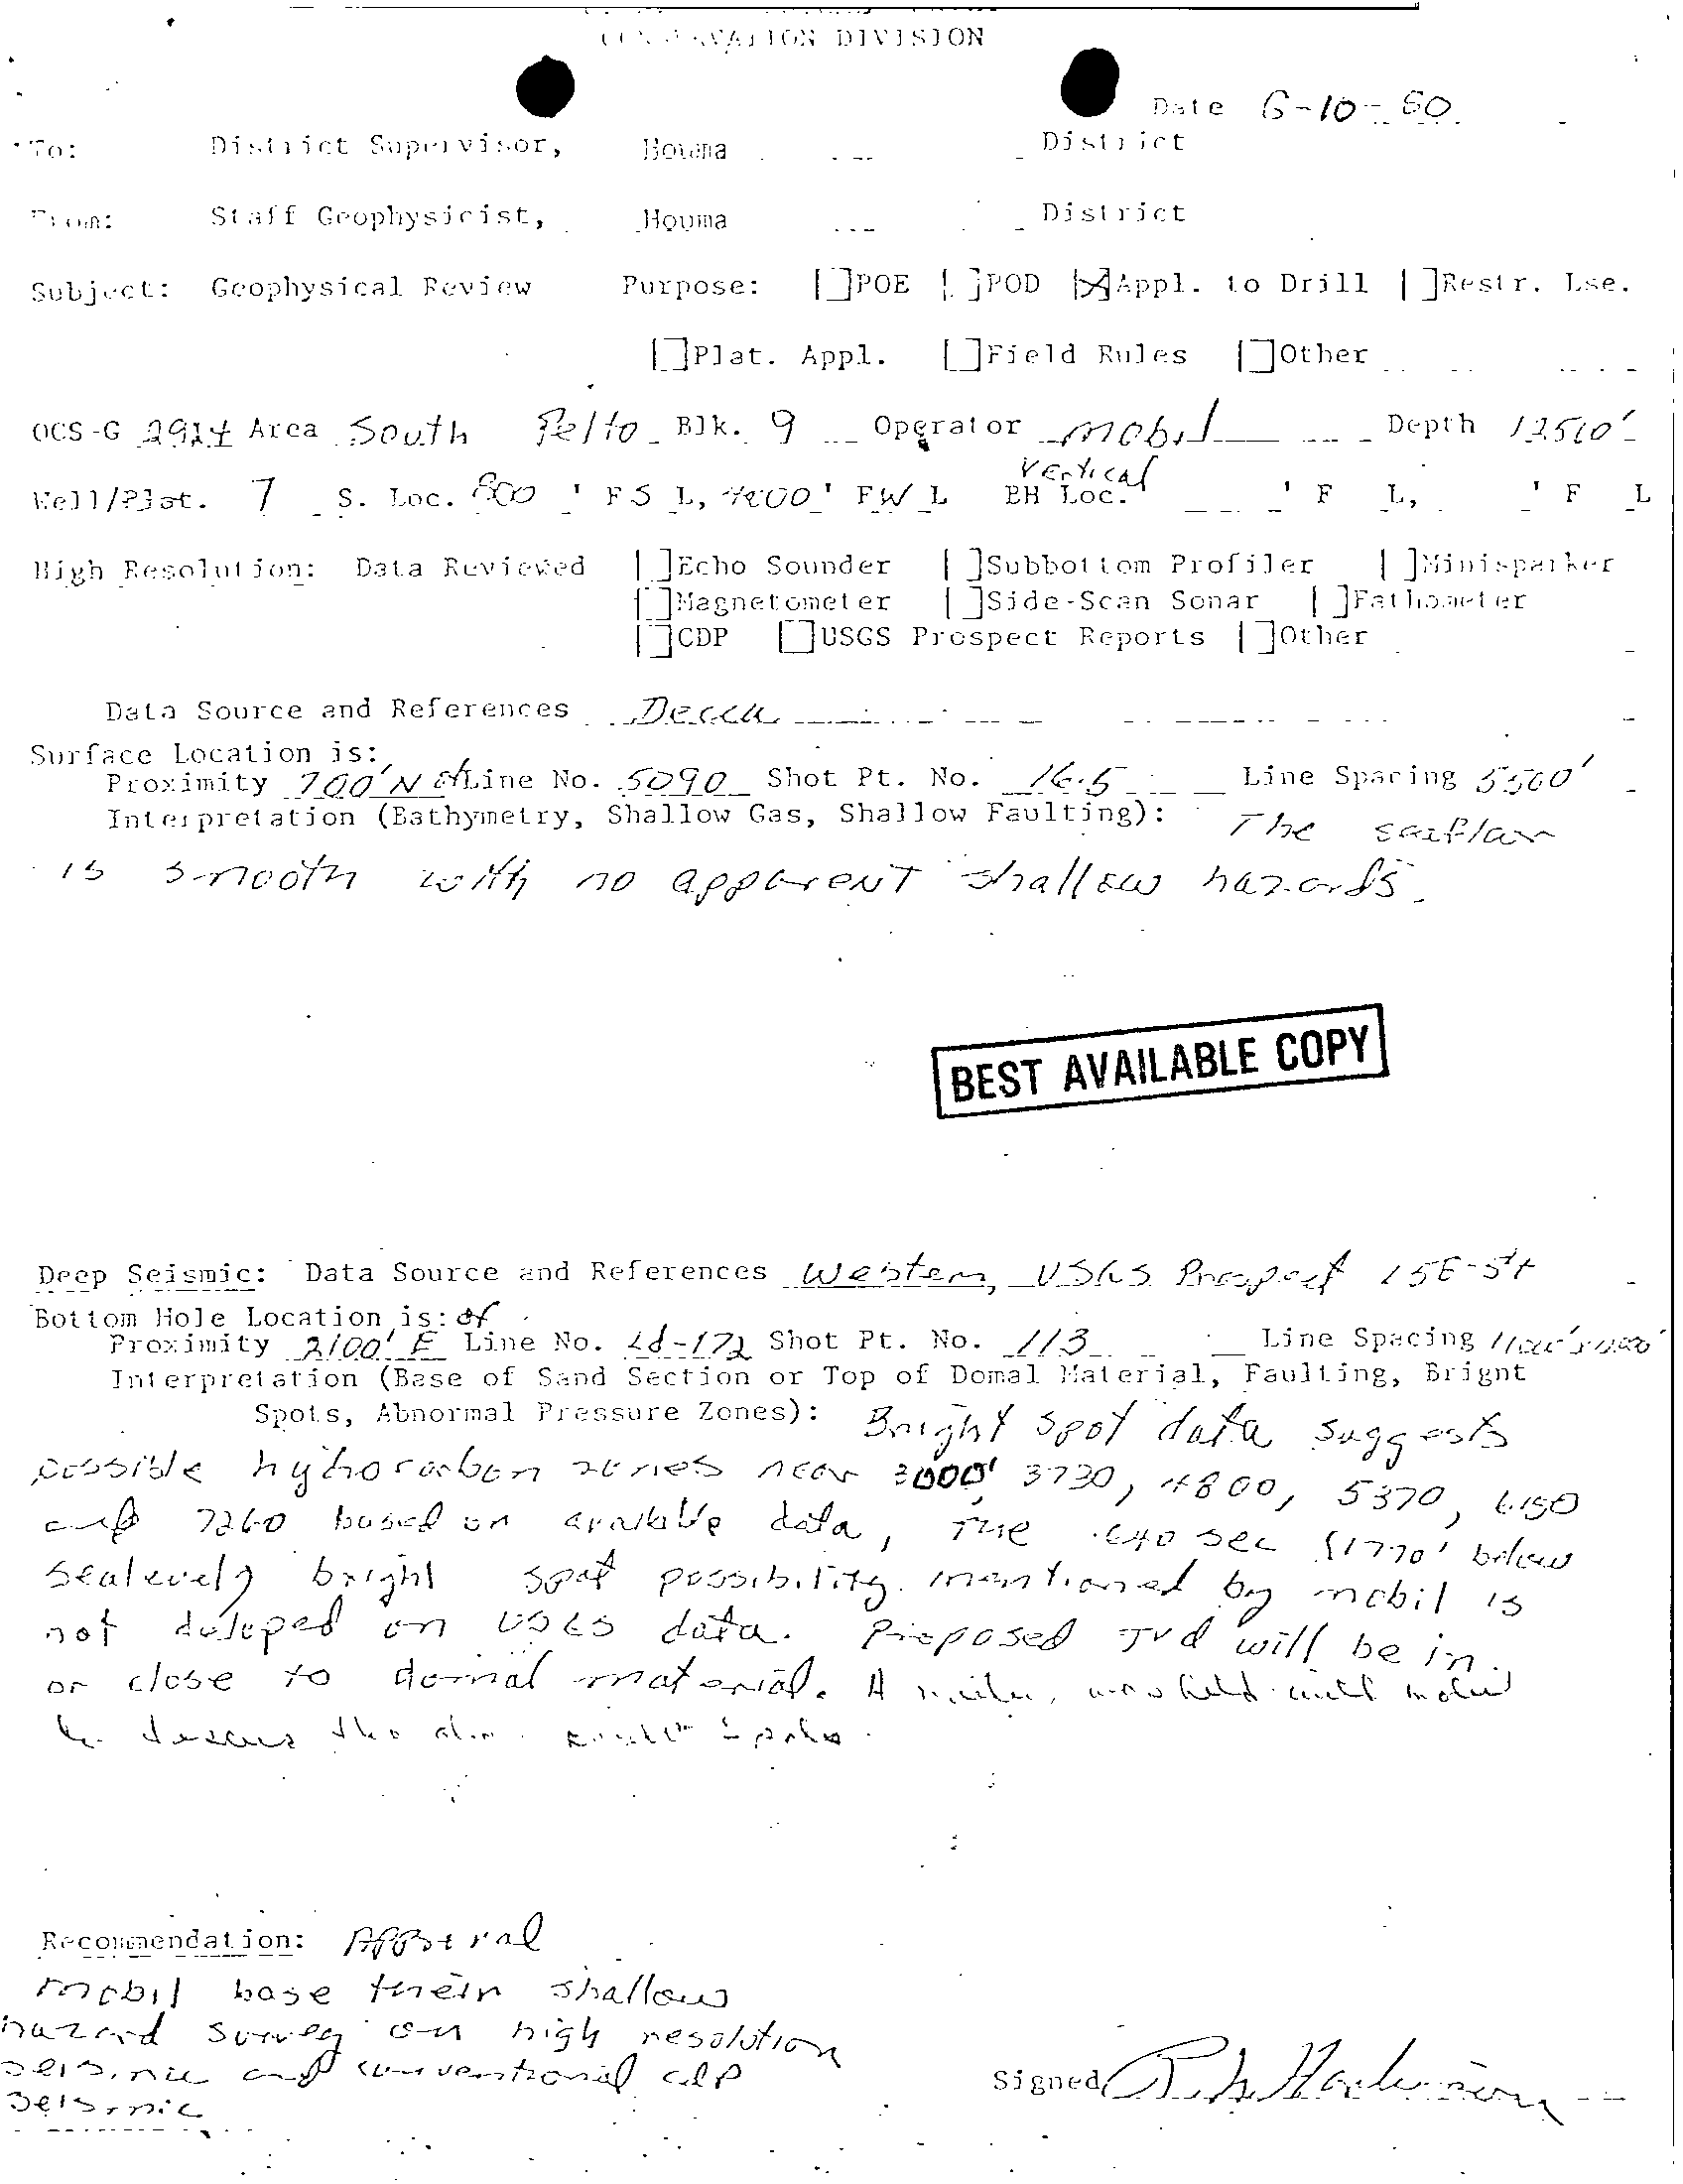 CONSERVATION DIVISION
Date 6-10-80
To: District Supervisor, Houma District
From: Staff Geophysicist, Houma District
Subject: Geophysical Review Purpose: [ ]POE [ ]POD [X]Appl. to Drill [ ]Restr. Lse.
[ ]Plat. Appl. [ ]Field Rules [ ]Other
OCS-G 2924 Area South Pelto Blk. 9 Operator Mobil Depth 12510'
Vertical
Well/Plat. 7 S. Loc. 800 ' F S L, 4200' FW L BH Loc. ' F L, ' F L
High Resolution: Data Reviewed [ ]Echo Sounder [ ]Subbottom Profiler [ ]Minisparker
[ ]Magnetometer [ ]Side-Scan Sonar [ ]Fathometer
[ ]CDP [ ]USGS Prospect Reports [ ]Other
Data Source and References Decca
Surface Location is:
Proximity 700' N of Line No. 5090 Shot Pt. No. 16.5 Line Spacing 5500'
Interpretation (Bathymetry, Shallow Gas, Shallow Faulting): The
is smooth with no apparent shallow hazards.
BEST AVAILABLE COPY
Deep Seismic: Data Source and References Western, USGS Prospect
Bottom Hole Location is: of
Proximity 2100' E Line No. Ld-172 Shot Pt. No. 113 Line Spacing
Interpretation (Base of Sand Section or Top of Domal Material, Faulting, Brignt
Spots, Abnormal Pressure Zones): Bright spot data suggests
possible zones near 3000' 3730, 4800, 5370, 6150
and 7260 based on available data, The .640 sec (1770' below
sealevel) bright spot possibility mentioned by mobil is
not on USGS data. Proposed TVD will be in
or close to domal material. A was held with mobil
to discuss the
Recommendation: Approval
mobil base shallow
hazard survey on high resolution
seismic and conventional cdp
seismic
Signed